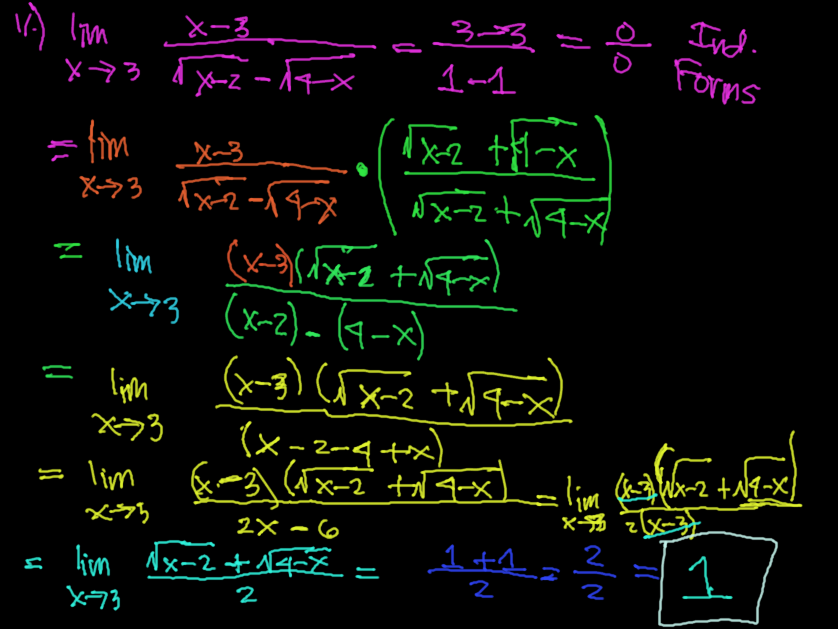 1.) lim x→3 (x-3)/(√(x-2) - √(4-x)) = (3-3)/(1-1) = 0/0 Ind. Forms
= lim x→3 (x-3)/(√(x-2) - √(4-x)) · ((√(x-2) + √(4-x))/(√(x-2) + √(4-x)))
= lim x→3 (x-3)(√(x-2) + √(4-x))/((x-2) - (4-x))
= lim x→3 (x-3)(√(x-2) + √(4-x))/(x-2-4+x)
= lim x→3 (x-3)(√(x-2) + √(4-x))/(2x-6) = lim x→3 (x-3)(√(x-2) + √(4-x))/(2(x-3))
= lim x→3 (√(x-2) + √(4-x))/2 = (1+1)/2 = 2/2 = 1